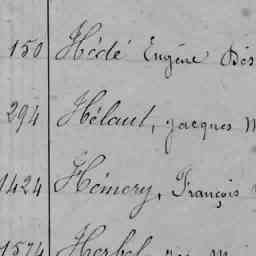 150 Hédé Eugène Dés
294 Hélaut, Jacques M
1424 Hémery, François
1574 Herbel